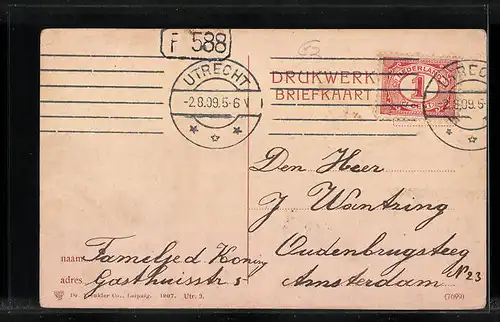 F 588
UTRECHT
-2.8.09.5-6 V
DRUKWERK
BRIEFKAART
NEDERLAND
1
CENT
UTRECHT
-2.8.09.5-6
Den Heer
J Wantring
Oudenbrugsteeg
N° 23
Amsterdam
naam Familje d. Koning
adres Gasthuisstr 5
Dr. Trenkler Co., Leipzig. 1907. Utr. 3.
(7699)